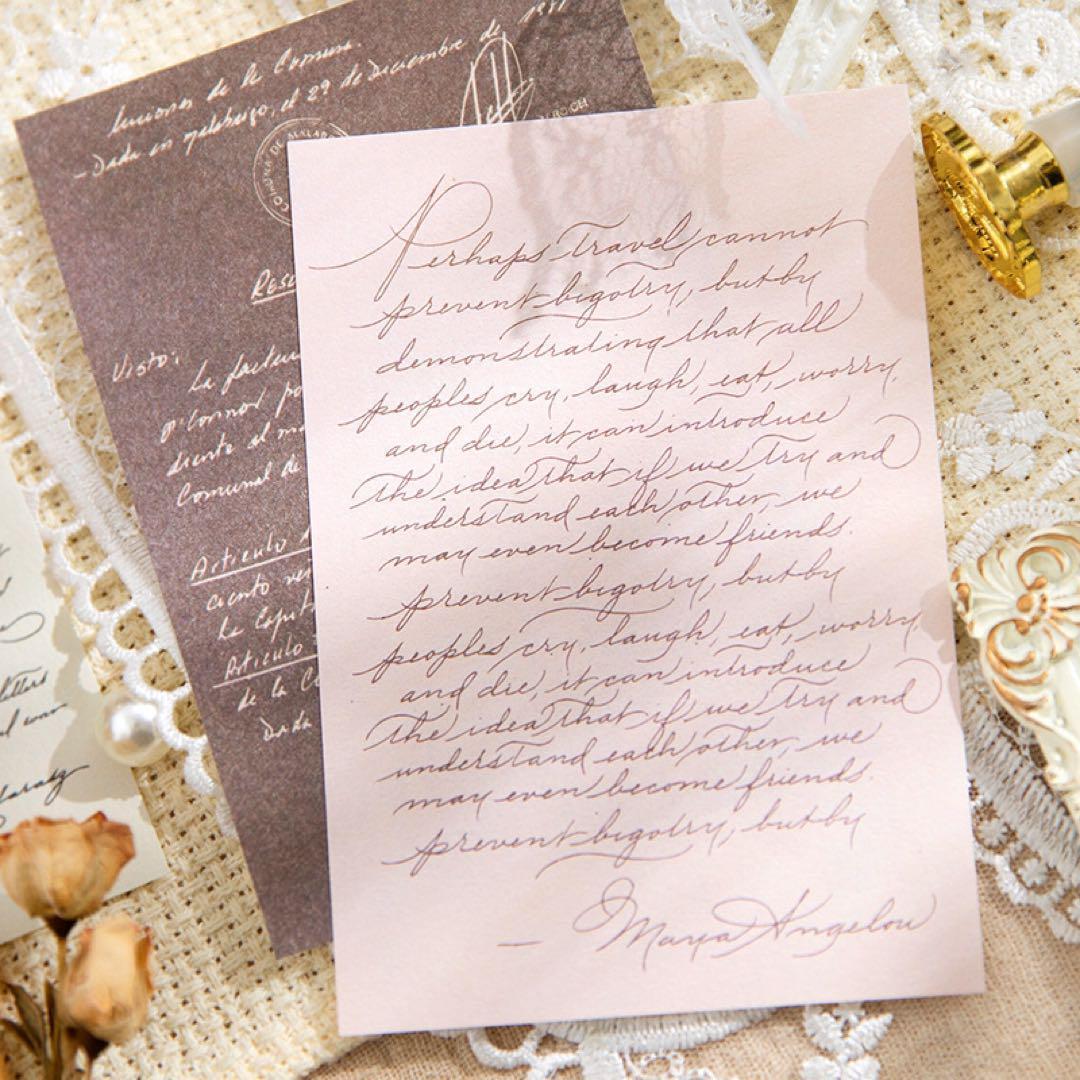 de la Comuna.
- Dada en Malabrigo, el 29 de Diciembre de 19
COMUNA DE MALAB
Visto:
La factura
O'Connor po
diente al m
Comunal de
Articulo
ciento ve
La Capit
Articulo
de la Co
Dada
Perhaps Travel cannot
prevent bigotry, but by
demonstrating that all
peoples cry, laugh, eat, worry,
and die, it can introduce
the idea that if we try and
understand each other, we
may even become friends.
prevent bigotry, but by
peoples cry, laugh, eat, worry
and die, it can introduce
the idea that if we try and
understand each other, we
may even become friends.
prevent bigotry, but by
— Maya Angelou